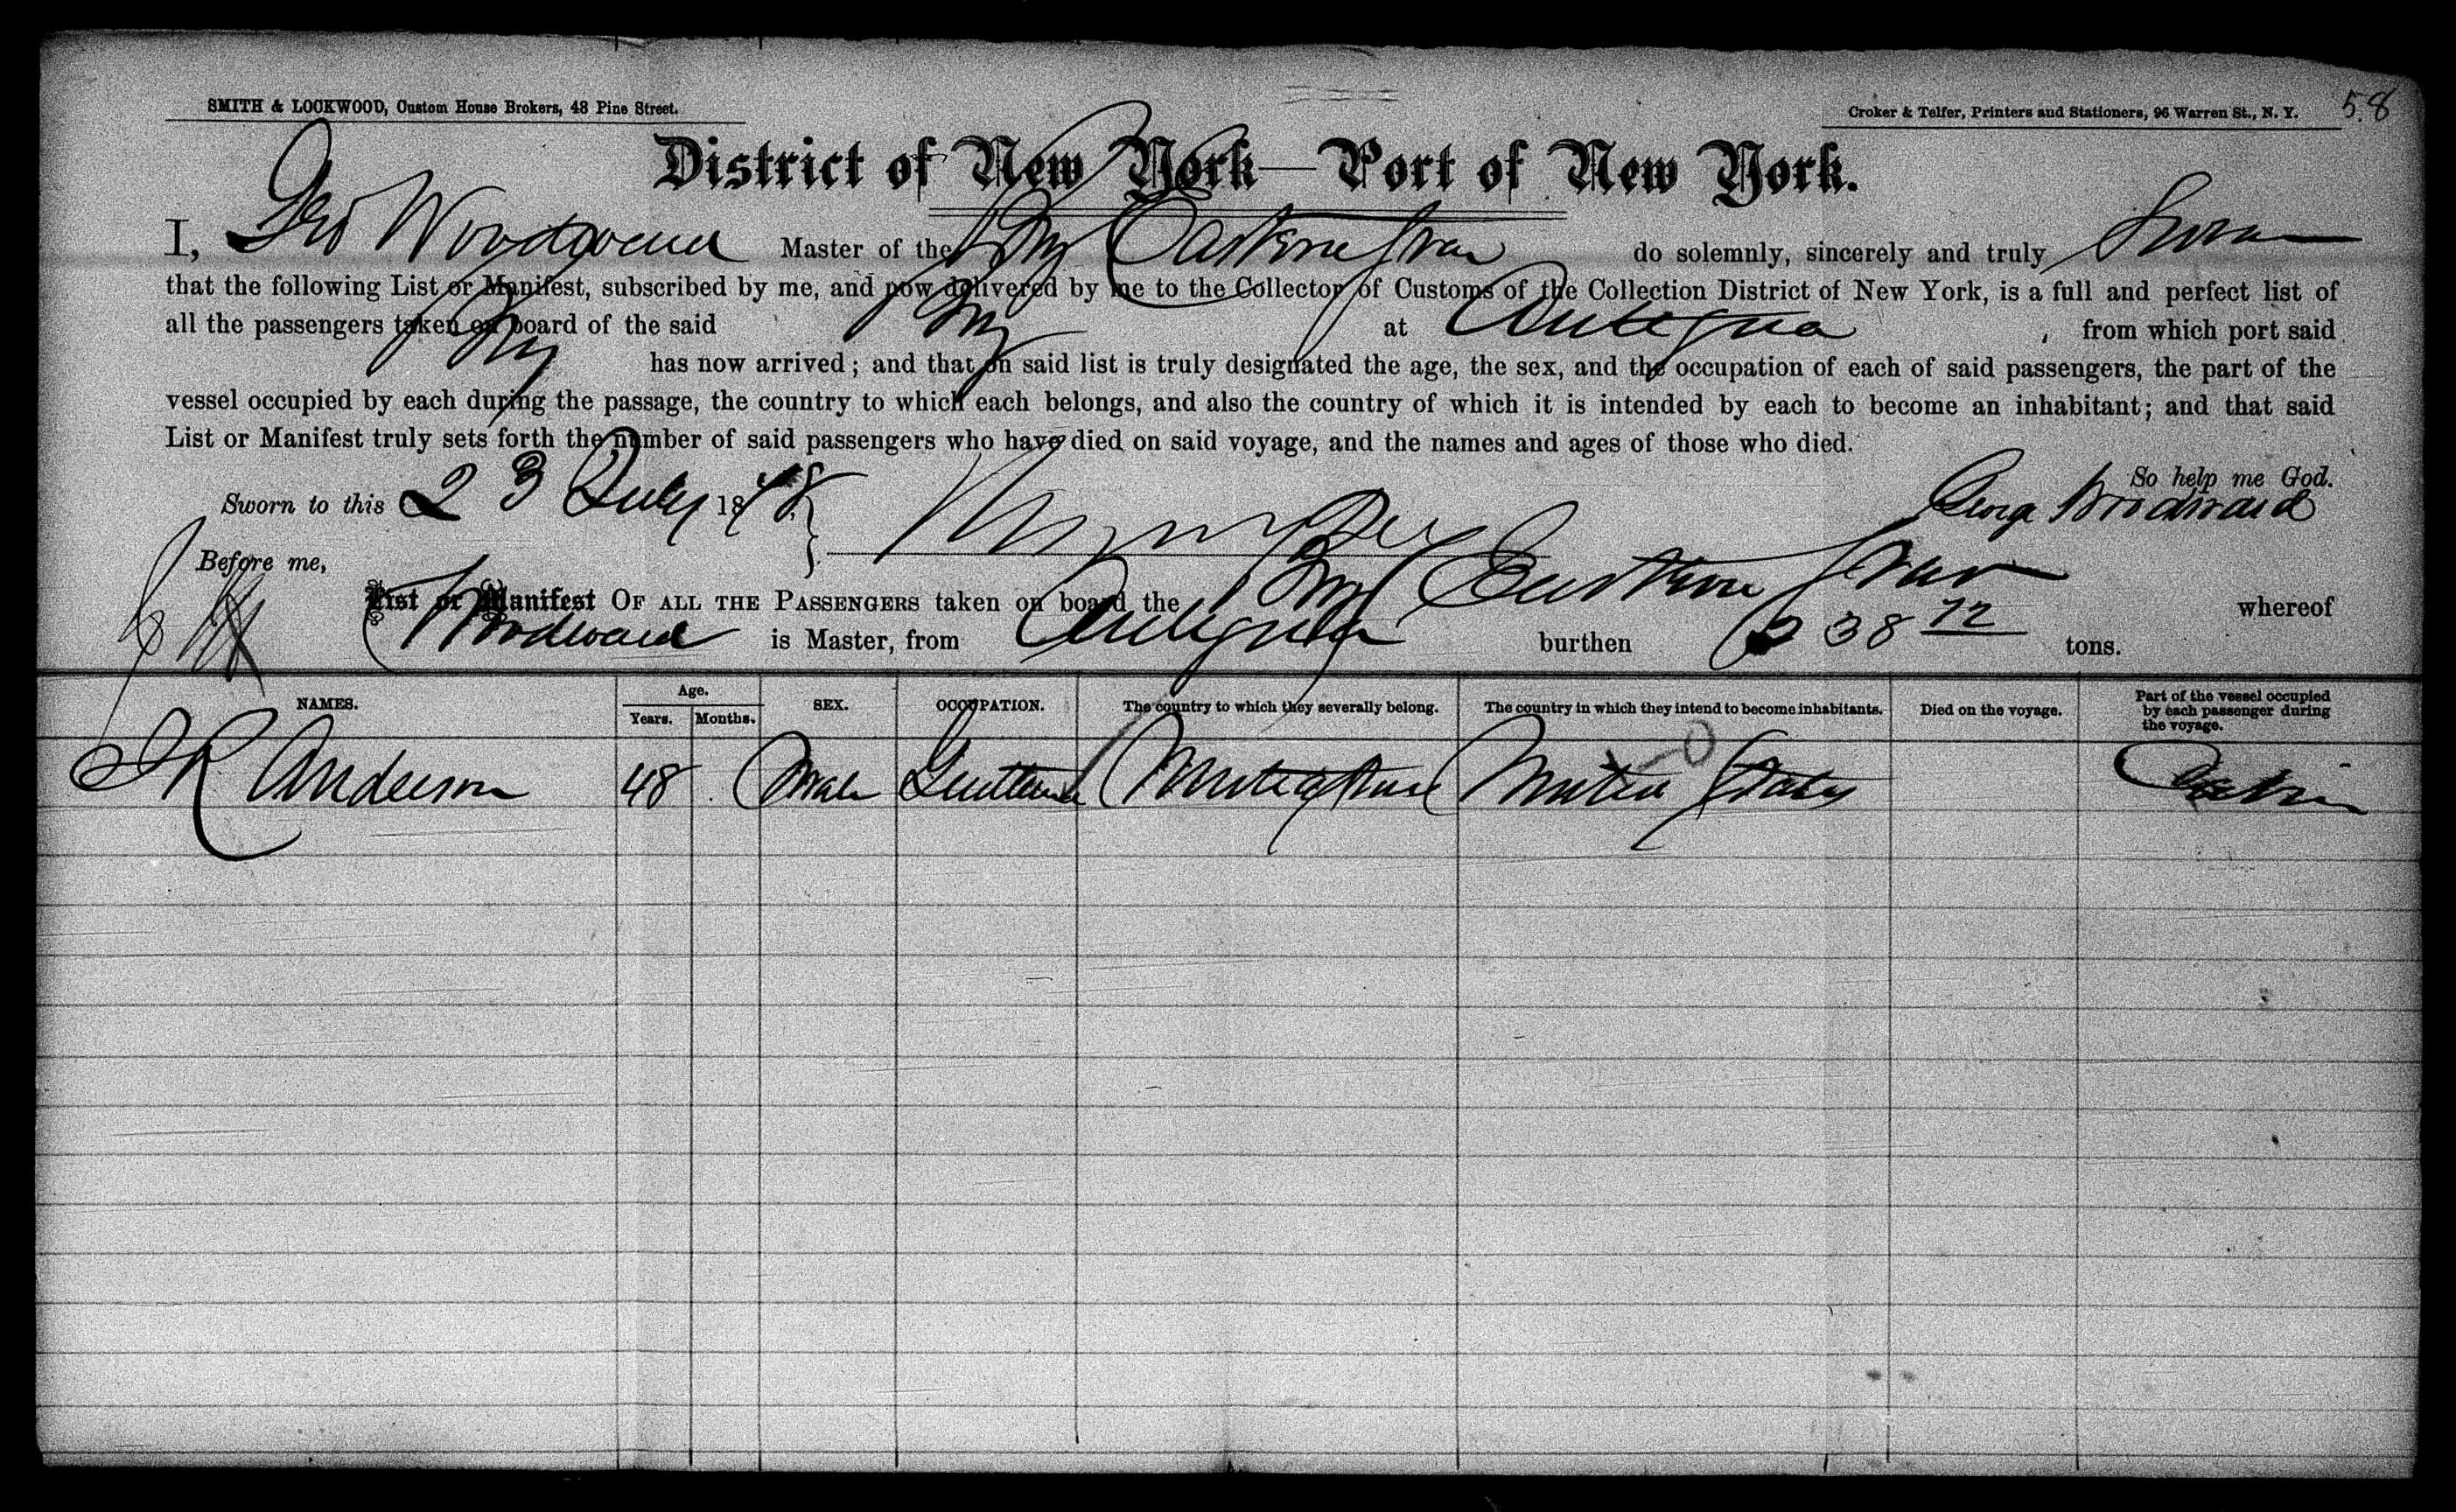 SMITH & LOCKWOOD, Custom House Brokers, 48 Pine Street.
Croker & Telfer, Printers and Stationers, 96 Warren St., N. Y. 58
District of New York—Port of New York.
I, Geo Woodward Master of the Brig Eastern Star do solemnly, sincerely and truly Swear
that the following List or Manifest, subscribed by me, and now delivered by me to the Collector of Customs of the Collection District of New York, is a full and perfect list of
all the passengers taken on board of the said Brig at Antigua, from which port said
Brig has now arrived; and that on said list is truly designated the age, the sex, and the occupation of each of said passengers, the part of the
vessel occupied by each during the passage, the country to which each belongs, and also the country of which it is intended by each to become an inhabitant; and that said
List or Manifest truly sets forth the number of said passengers who have died on said voyage, and the names and ages of those who died.
So help me God.
Sworn to this 23 July 1878 George Woodward
Before me,
List or Manifest OF ALL THE PASSENGERS taken on board the Brig Eastern Star whereof
Woodward is Master, from Antigua burthen 238 72 tons.
NAMES. Age. Years. Months. SEX. OCCUPATION. The country to which they severally belong. The country in which they intend to become inhabitants. Died on the voyage. Part of the vessel occupied by each passenger during the voyage.
J R Anderson 48 Male Gentleman United States United States Cabin